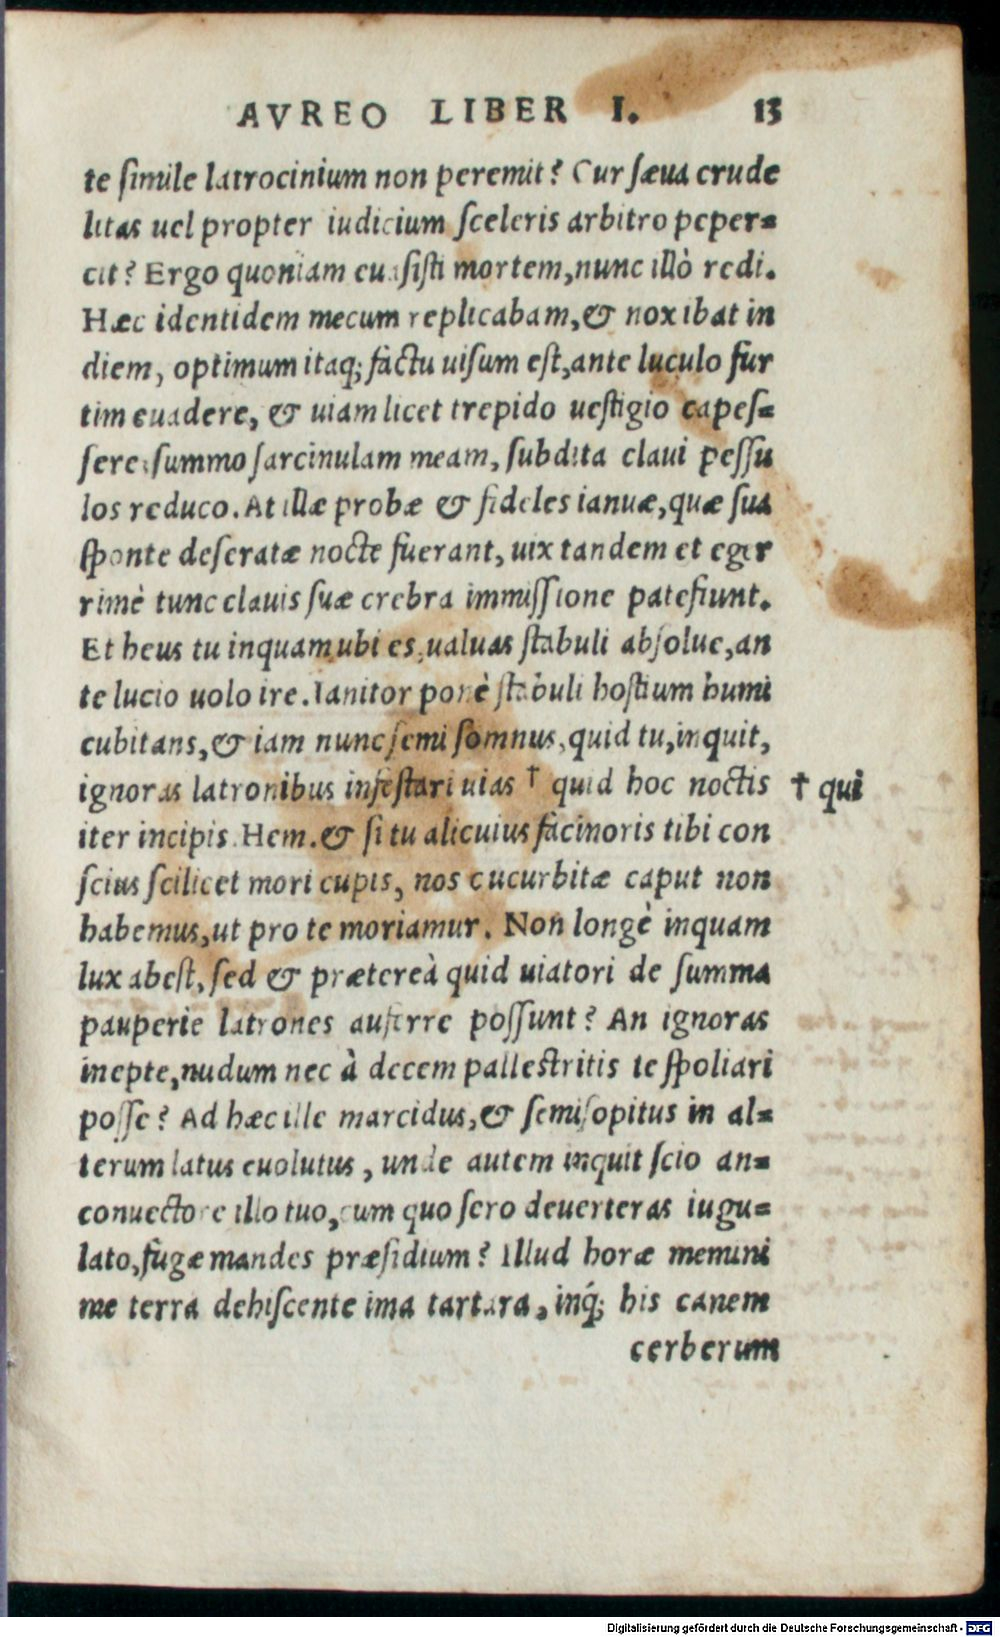 AVREO LIBER I. 13
te ſimile latrocinium non peremit? Cur ſæua crude
litas uel propter iudicium ſceleris arbitro peper=
cit? Ergo quoniam euaſiſti mortem, nunc illò redi.
Hæc identidem mecum replicabam, & nox ibat in
diem, optimum itaq; factu uiſum eſt, ante luculo fur
tim euadere, & uiam licet trepido ueſtigio capeſ=
ſere: ſummo ſarcinulam meam, ſubdita claui peſſu
los reduco. At illæ probæ & fideles ianuæ, quæ ſua
ſponte deſeratæ nocte fuerant, uix tandem et eger
rimè tunc clauis ſuæ crebra immiſſione patefiunt.
Et heus tu inquam ubi es, ualuas ſtabuli abſolue, an
te lucio uolo ire. Ianitor ponè ſtabuli hoſtium humi
cubitans, & iam nunc ſemi ſomnus, quid tu, inquit,
ignoras latronibus infeſtari uias † quid hoc noctis
† qui
iter incipis. Hem. & ſi tu alicuius facinoris tibi con
ſcius ſcilicet mori cupis, nos cucurbitæ caput non
habemus, ut pro te moriamur. Non longè inquam
lux abeſt, ſed & prætereà quid uiatori de ſumma
pauperie latrones auferre poſſunt? An ignoras
inepte, nudum nec à decem palleſtritis te ſpoliari
poſſe? Ad hæc ille marcidus, & ſemiſopitus in al=
terum latus euolutus, unde autem inquit ſcio an=
conuectore illo tuo, cum quo ſero deuerteras iugu=
lato, fugæ mandes præſidium? Illud horæ memini
me terra dehiſcente ima tartara, inq́; his canem
cerberum
Digitalisierung gefördert durch die Deutsche Forschungsgemeinschaft - DFG